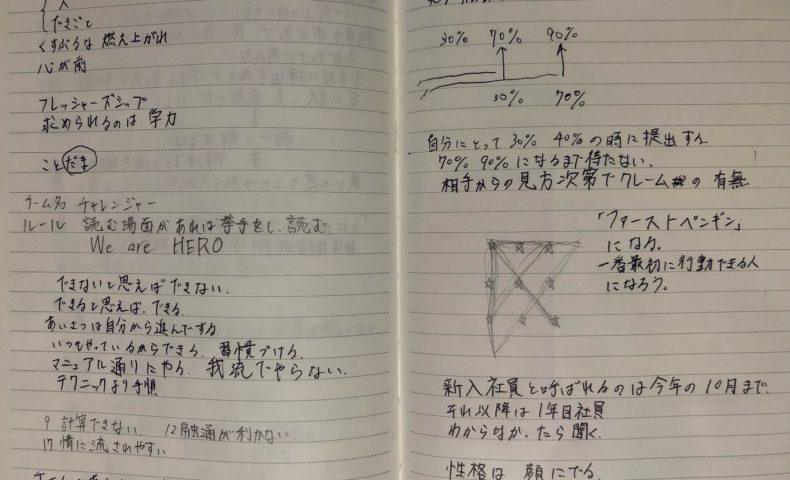 人
できごと
くすぶるな 燃え上がれ
心が前
フレッシャーズシップ
求められるのは 学力
ことだま
チーム名 チャレンジャー
ルール 読む場面があれば挙手をし、読む
We are HERO
できないと思えばできない。
できると思えば、できる。
あいさつは自分から進んでする
いつもやっているからできる。習慣づける
マニュアル通りにやる。我流でやらない。
テクニックより手順
9 計算できない 12 融通が利かない
17 情に流されやすい
30% 70% 90%
30% 70%
自分にとって30% 40%の時に提出する
70% 90%になるまで待たない。
相手からの見方次第でクレームの有無
「ファーストペンギン」
になる。
一番最初に行動できる人
になろう。
新入社員と呼ばれるのは今年の10月まで
それ以降は1年目社員
わからなかったら聞く。
性格は 顔にでる。